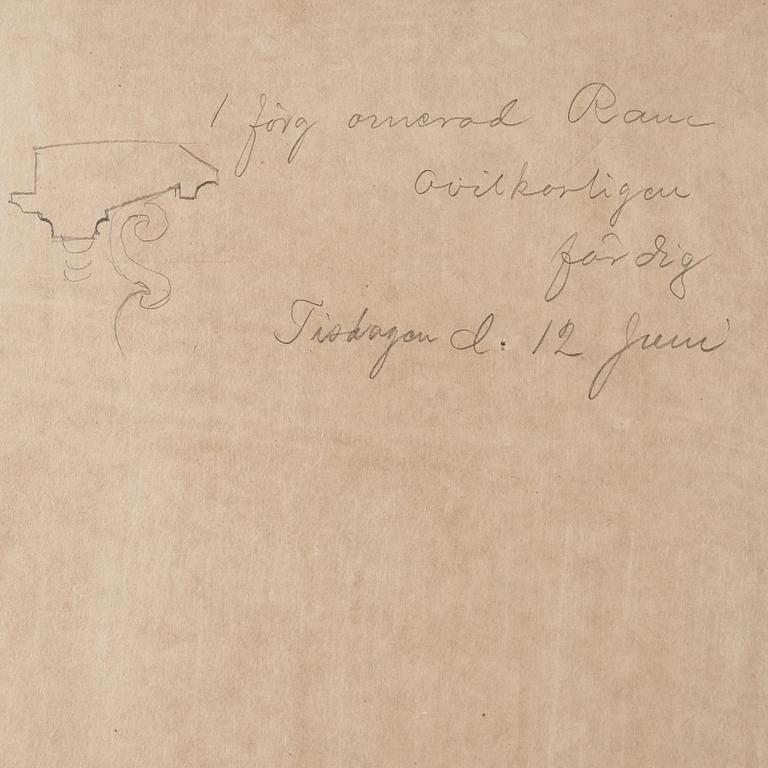 1 förg ornerad Ram
Ovilkorligen
färdig
Tisdagen d. 12 Juni